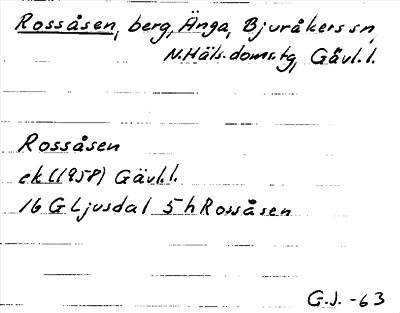 Rossåsen, berg, Änga, Bjuråkers sn,
N. Häls. doms.tg, Gävl. l.
Rossåsen
ek (1958) Gävl. l.
16 G Ljusdal 5 h Rossåsen
G.J. -63